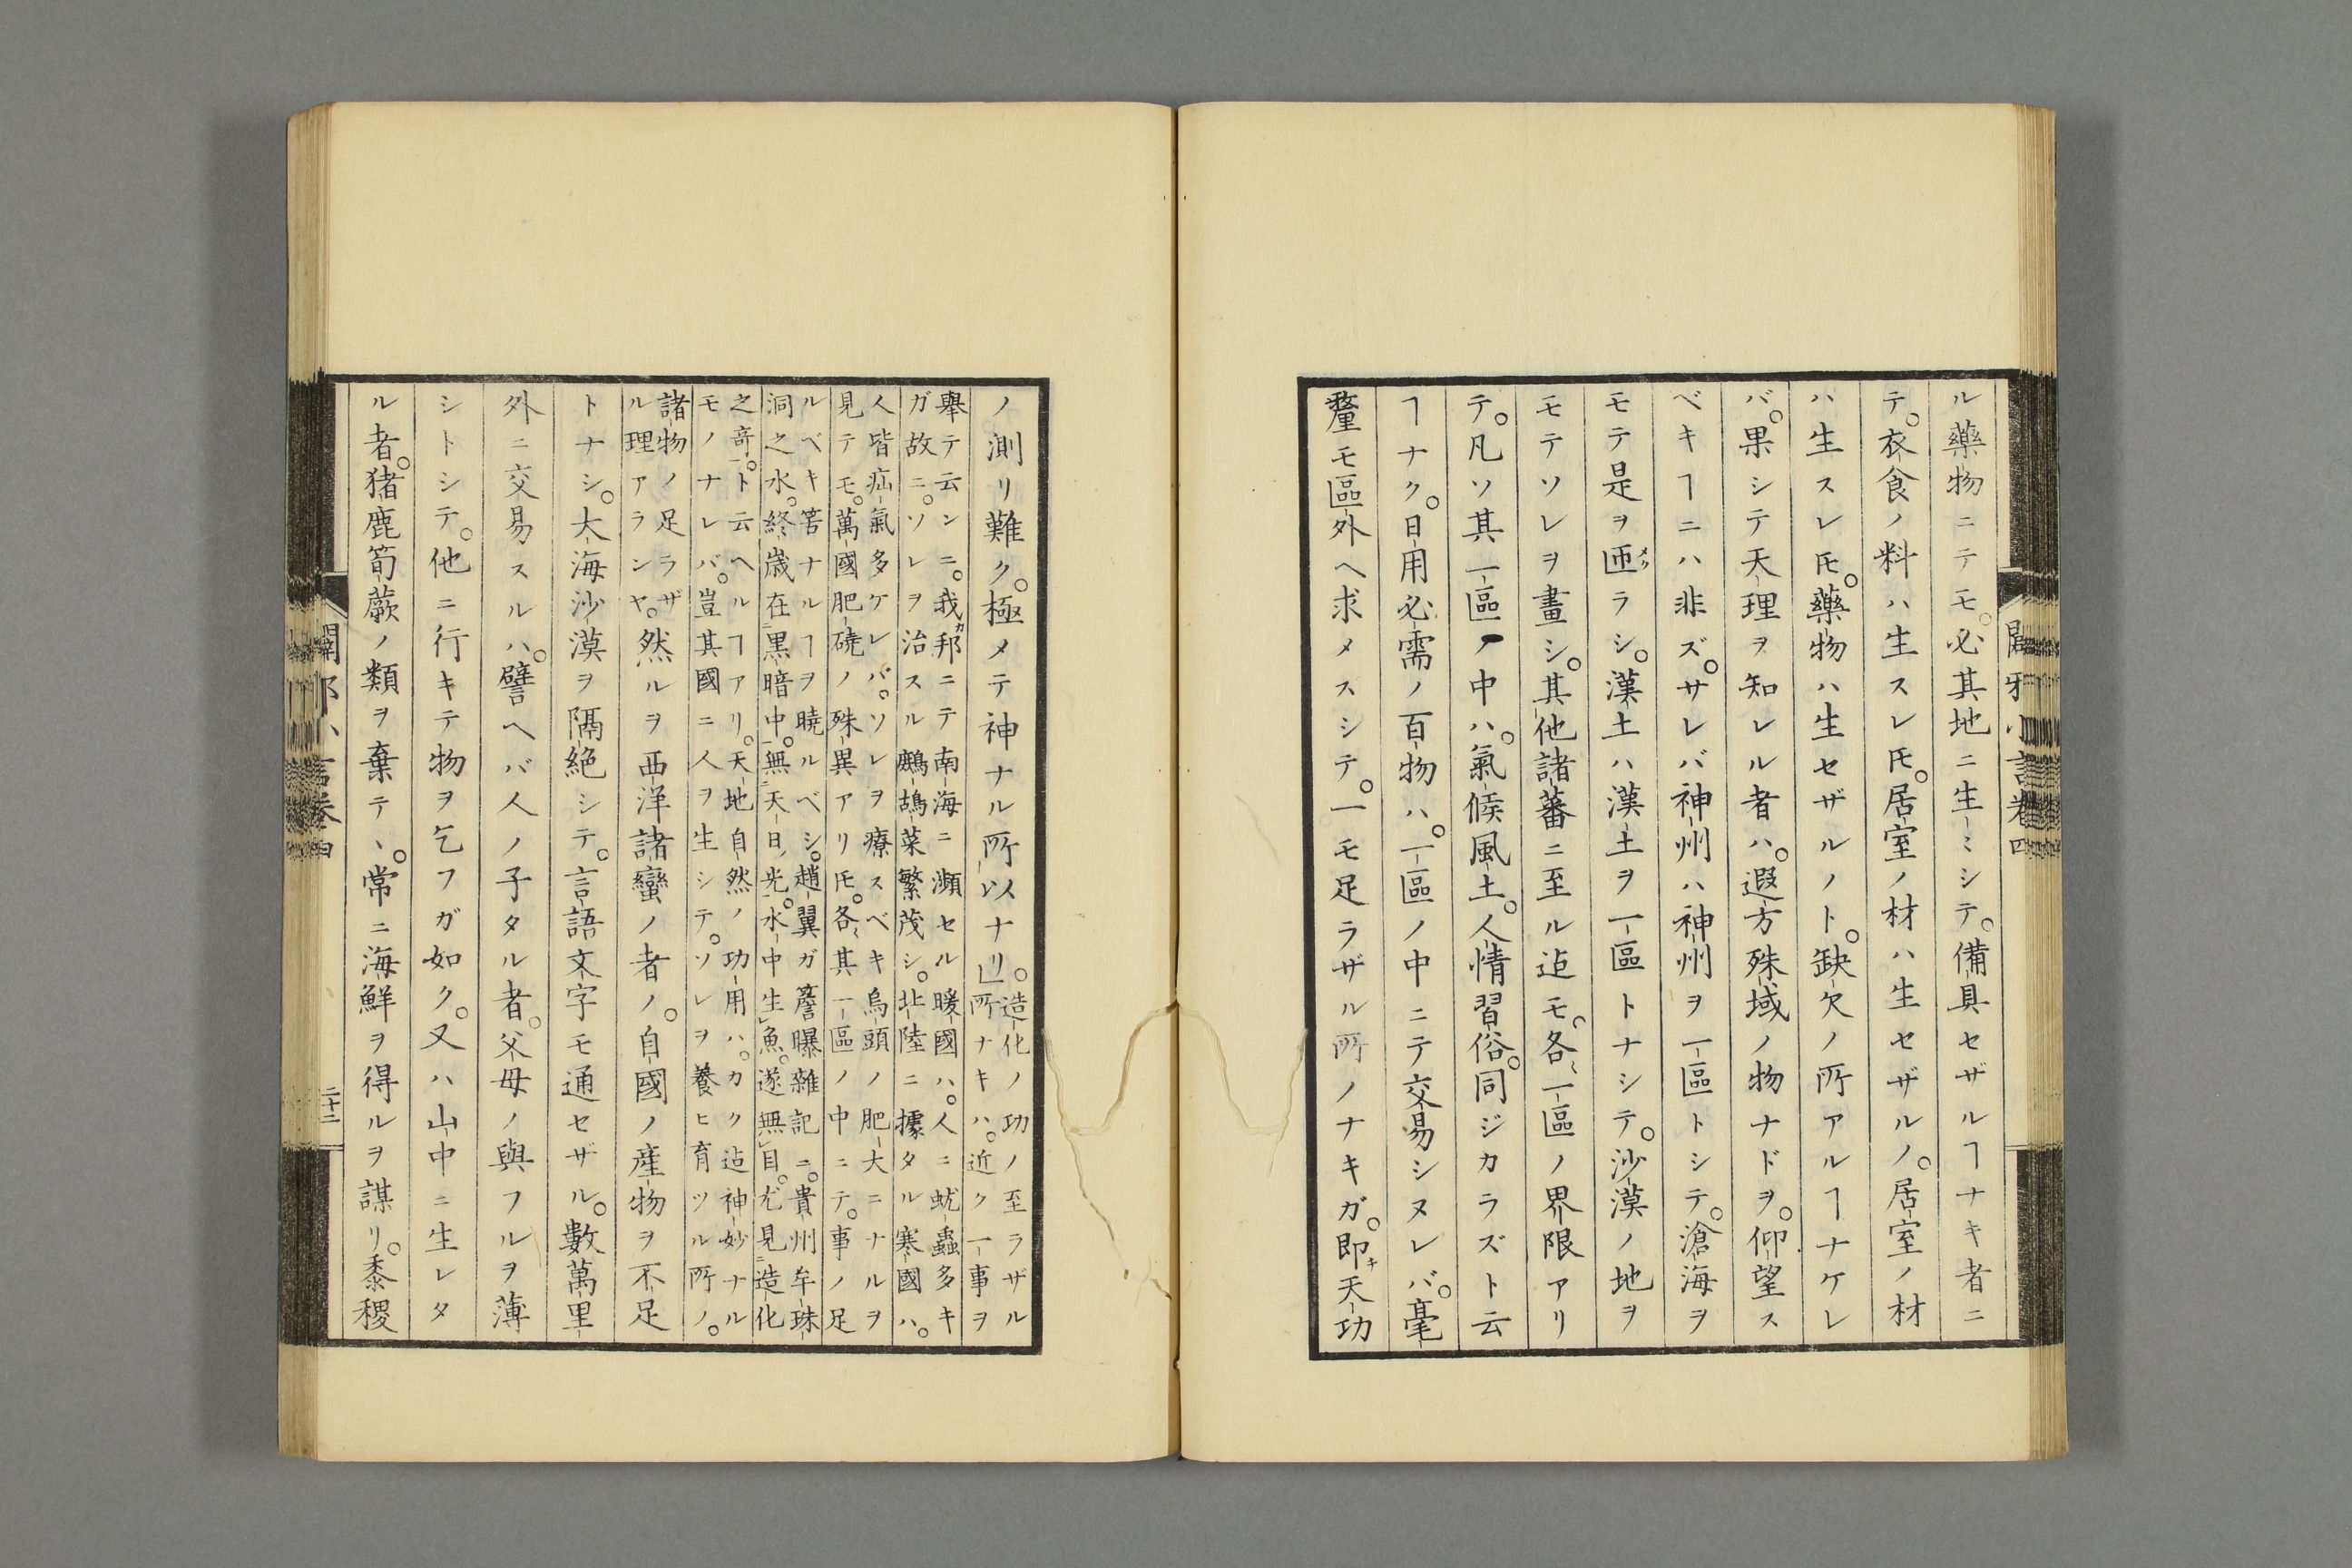 ル藥物ニテモ。必其地ニ生ミシテ。備具セザルヿナキ者ニ
テ。衣食ノ料ハ生スレ𪜈。居室ノ材ハ生セザルノ。居室ノ材
ハ生スレ𪜈。藥物ハ生セザルノト。缺欠ノ所アルヿナケレ
バ。果シテ天理ヲ知レル者ハ。遐方殊域ノ物ナドヲ。仰望ス
ベキヿニハ非ズ。サレバ神州ハ神州ヲ一區トシテ。滄海ヲ
モテ是ヲ匝ラシ。漢土ハ漢土ヲ一區トナシテ。沙漠ノ地ヲ
モテソレヲ畫シ。其他諸蕃ニ至ル迠モ。各〻一區ノ界限アリ
テ。凡ソ其一區ノ中ハ。氣候風土。人情習俗。同ジカラズト云
ヿナク。日用必需ノ百物ハ。一區ノ中ニテ交易シヌレバ。毫
釐モ區外ヘ求メスシテ。一モ足ラザル所ノナキガ。即キ天功
ノ測リ難ク。極メテ神ナル所以ナリ」。造化ノ功ノ至ラザル
所ナキハ。近ク一事ヲ
擧テ云ンニ。我カ邦ニテ南海ニ瀕セル暖國ハ。人ニ蚘蟲多キ
ガ故ニ。ソレヲ治スル鷓鴣菜繁茂シ。北陸ニ據タル寒國ハ。
人皆疝氣多ケレバ。ソレヲ療スベキ烏頭ノ肥大ニナルヲ
見テモ。萬國肥磽ノ殊異アリ𪜈。各〻其一區ノ中ニテ。事ノ足
ルベキ筈ナルヿヲ曉ルベシ。趙翼ガ簷曝雜記ニ。貴州牟珠
洞之水。終歳在黒暗中。無天日光。水中生魚。遂無目。尤見造化
之奇。ト云ヘルヿアリ。天地自然ノ功用ハ。カク迠神妙ナル
モノナレバ。豈其國ニ人ヲ生シテ。ソレヲ養ヒ育ツル所ノ。
諸物ノ足ラザ
ル理アランヤ。然ルヲ西洋諸蠻ノ者ノ。自國ノ産物ヲ不足
トナシ。大海沙漠ヲ隔絶シテ。言語文字モ通セザル。數萬里
外ニ交易スルハ。譬ヘバ人ノ子タル者。父母ノ與フルヲ薄
シトシテ。他ニ行キテ物ヲ乞フガ如ク。又ハ山中ニ生レタ
ル者。猪鹿筍蕨ノ類ヲ棄テヽ。常ニ海鮮ヲ得ルヲ謀リ。黍稷
言卷四
二十二